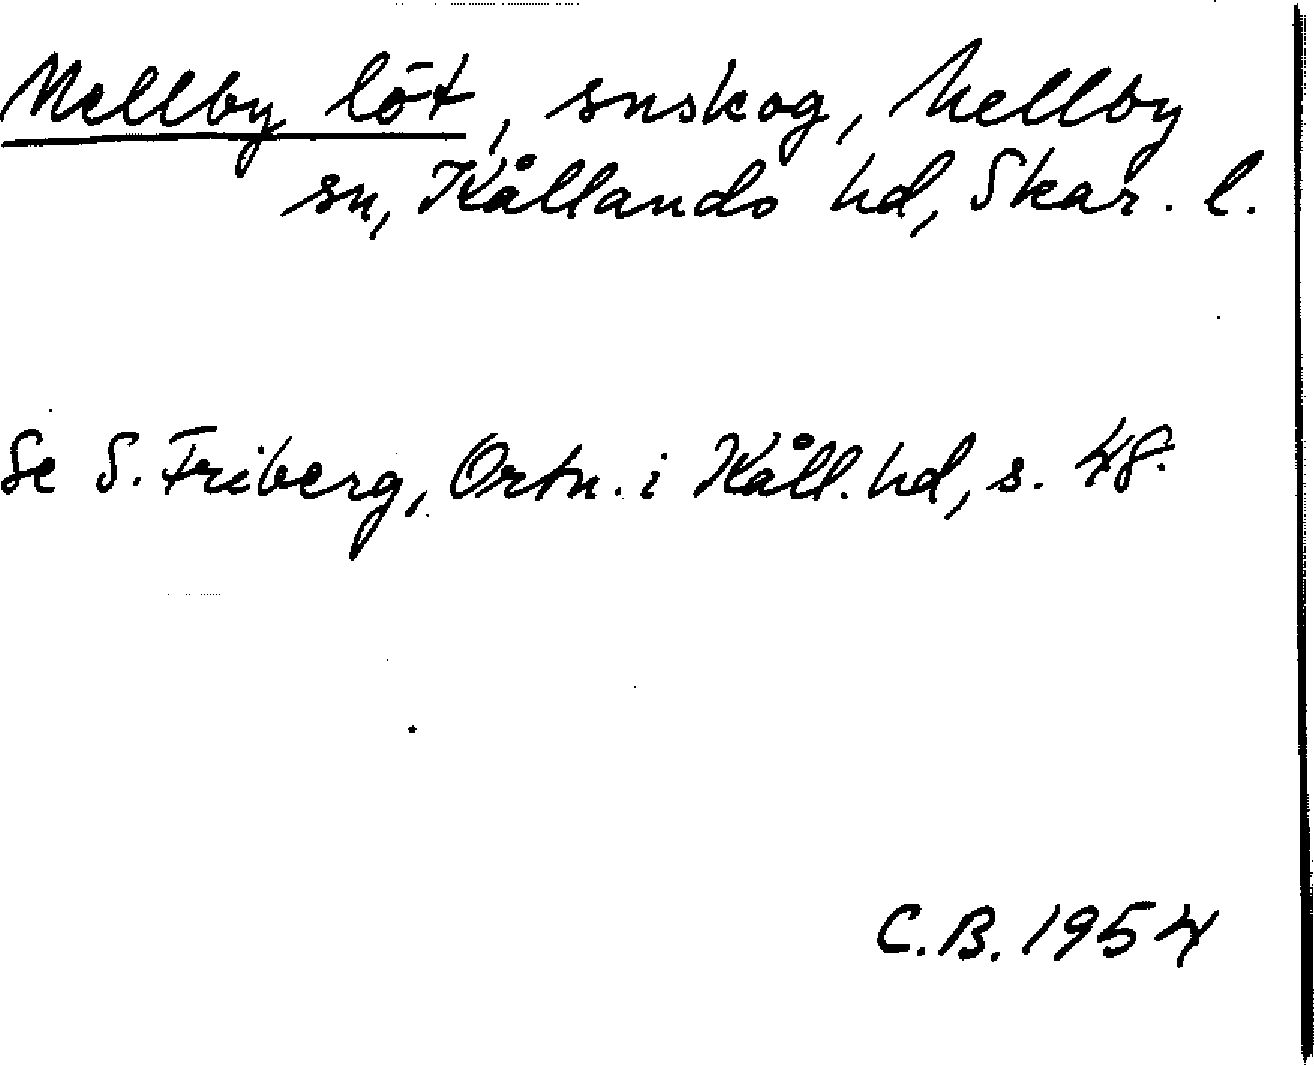 Mellby löt, snskog, Mellby
sn, Kållands hd, Skar. l.
Se S. Friberg, Ortn. i Kåll. hd, s. 48.
C.B. 1954